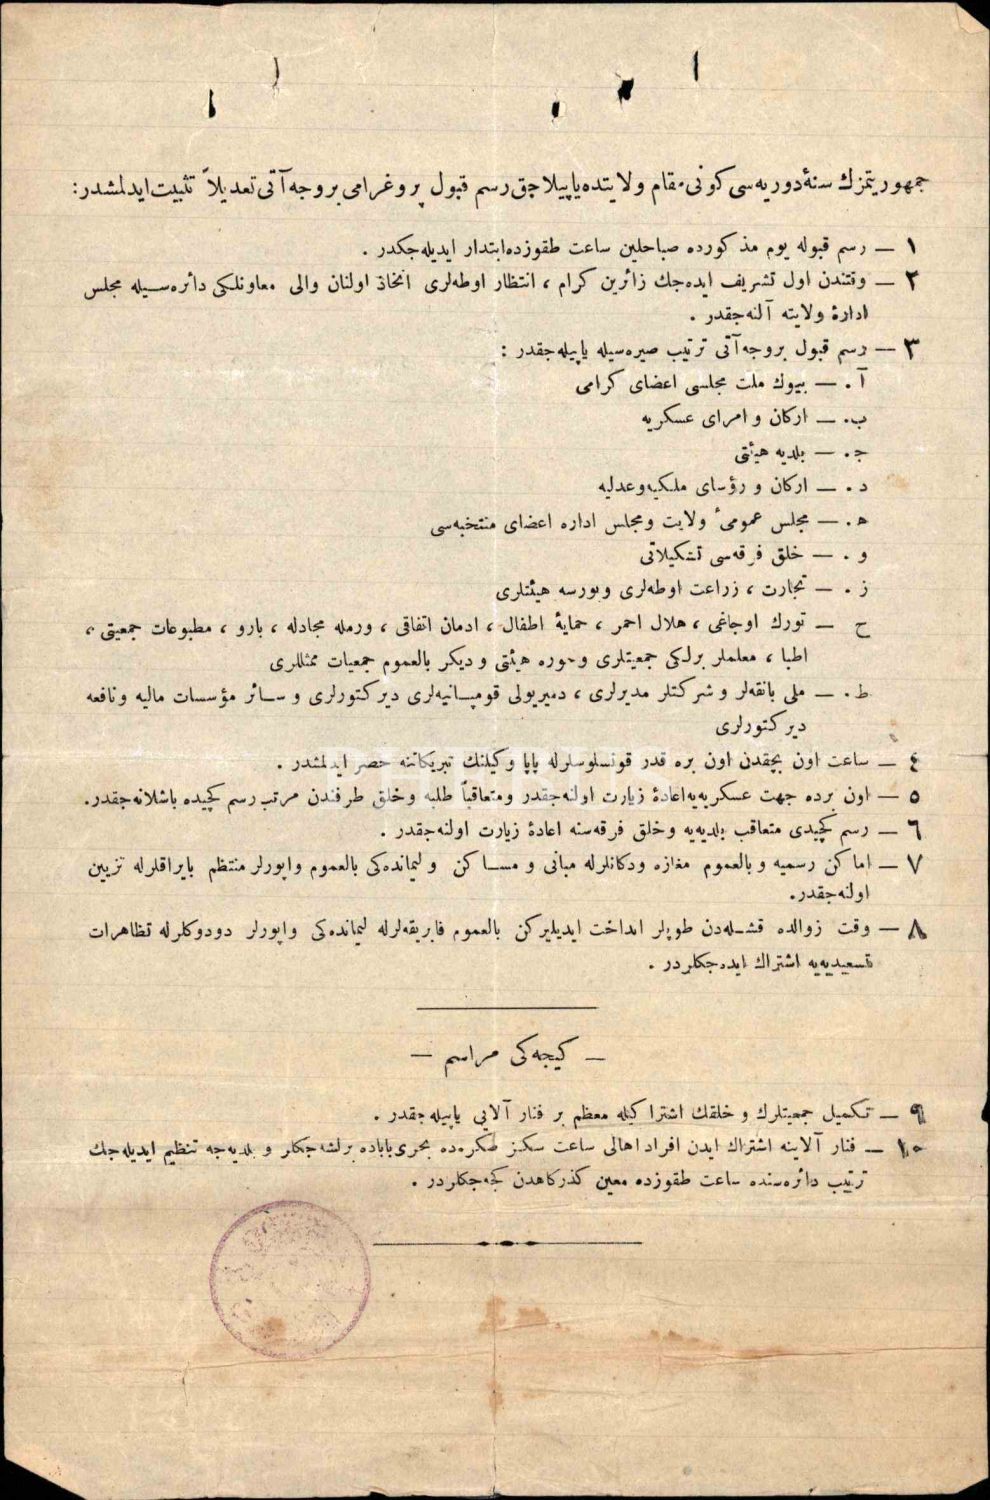 جمهوريتمزك سنۀ دوريه‌سى كونى مقام ولايتده ياپيلاجق رسم قبول پروغرامى بروجه آتى تعديلاً تثبيت ايدلمشدر:
١ — رسم قبوله يوم مذكورده صباحلين ساعت طقوزده ابتدار ايديله‌جكدر .
٢ — وقتندن اول تشريف ايده‌جك زائرين كرام ، انتظار اوطه‌لرى اتخاذ اولنان والى معاونلكى دائره‌سيله مجلس
ادارۀ ولايته آلنه‌جقدر .
٣ — رسم قبول بروجه آتى ترتيب صيره‌سيله ياپيله‌جقدر :
آ . — بيوك ملت مجلسى اعضاى كرامى
ب . — اركان و امراى عسكريه
ج . — بلديه هيئتى
د . — اركان و رؤساى ملكيه وعدليه
ه . — مجلس عمومئ ولايت ومجلس اداره اعضاى منتخبه‌سى
و . — خلق فرقه‌سى تشكيلاتى
ز . — تجارت ، زراعت اوطه‌لرى وبورسه هيئتلرى
ح — تورك اوجاغى ، هلال احمر ، حمايۀ اطفال ، ادمان اتفاقى ، ورمله مجادله ، بارو ، مطبوعات جمعيتى ،
اطبا ، معلملر برلكى جمعيتلرى و حوره هيئتى و ديكر بالعموم جمعيات ممثللرى
ط . — ملى بانقه‌لر و شركتلر مديرلرى ، دميريولى قومپانيه‌لرى ديركتورلرى و سائر مؤسسات ماليه ونافعه
ديركتورلرى
٤ — ساعت اون بچقدن اون بره قدر قونسلوسلرله پاپا وكيلنك تبريكاتنه حصر ايدلمشدر .
٥ — اون برده جهت عسكريه‌يه اعادۀ زيارت اولنه‌جقدر ومتعاقباً طلبه وخلق طرفندن مرتب رسم كچيده باشلانه‌جقدر.
٦ — رسم كچيدى متعاقب بلديه‌يه وخلق فرقه‌سنه اعادۀ زيارت اولنه‌جقدر .
٧ — اماكن رسميه و بالعموم مغازه ودكانلرله مبانى و مساكن و ليمانده‌كى بالعموم واپورلر منتظم بايراقلرله تزيين
اولنه‌جقدر.
٨ — وقت زوالده قشله‌دن طوپلر انداخت ايديليركن بالعموم فابريقه‌لرله ليمانده‌كى واپورلر دودوكلرله تظاهرات
تسعيديه‌يه اشتراك ايده‌جكلردر .
— كيجه‌كى مراسم —
٩ — تكميل جمعيتلرك و خلقك اشتراكيله معظم بر فنار آلايى ياپيله‌جقدر .
١٠ — فنار آلاينه اشتراك ايدن افراد اهالى ساعت سكز طكره‌ده بحرى‌باباده برلشه‌جكلر و بلديه‌جه تنظيم ايديله‌جك
ترتيب دائره‌سنده ساعت طقوزده معين كذركاهدن كچه‌جكلردر .